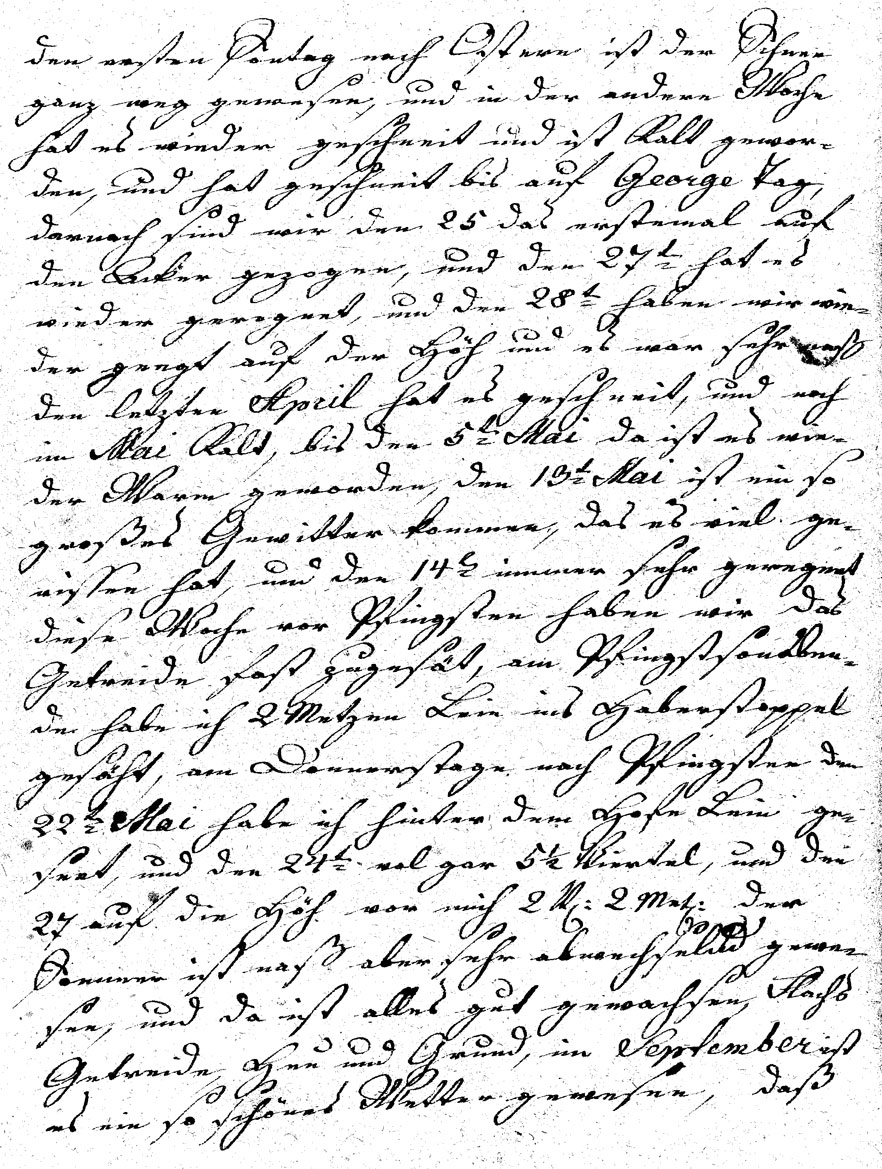 den ersten Sontag nach Ostern ist der Schnee
ganz weg gewesen, und in der andern Woche
hat es wieder geschneit und ist Kalt gewor-
den, und hat geschneit bis auf George Tag,
darnach sind wir den 25 das erstemal auf
den Acker gezogen, und den 27t hat es
wieder geregnet, und den 28t haben wir wie-
der geegt auf der Höh und es war sehr naß
den letzten April hat es geschneit, und noch
im Mai Kalt, bis den 5t Mai da ist es wie-
der Warm geworden, den 13t Mai ist ein so
großes Gewitter kommen, das es viel ge-
rissen hat, und den 14t immer sehr geregnet
diese Woche vor Pfingsten haben wir das
Getreide fast zugesät, am Pfingstsonaben-
de habe ich 2 Metzen Lein ins Haberstoppel
gesäht, am Donnerstage nach Pfingsten den
22t Mai habe ich hinter dem Hofe Lein ge-
seet, und den 24t vol gar 5½ Viertel, und den
27 auf die Höh vor mich 2 V: 2 Met: der
Sommer ist naß aber sehr abwechselnd gewe-
sen, und da ist alles gut gewachsen, Flachs
Getreide Heu und Grund, im September ist
es ein so schönes Wetter gewesen, daß